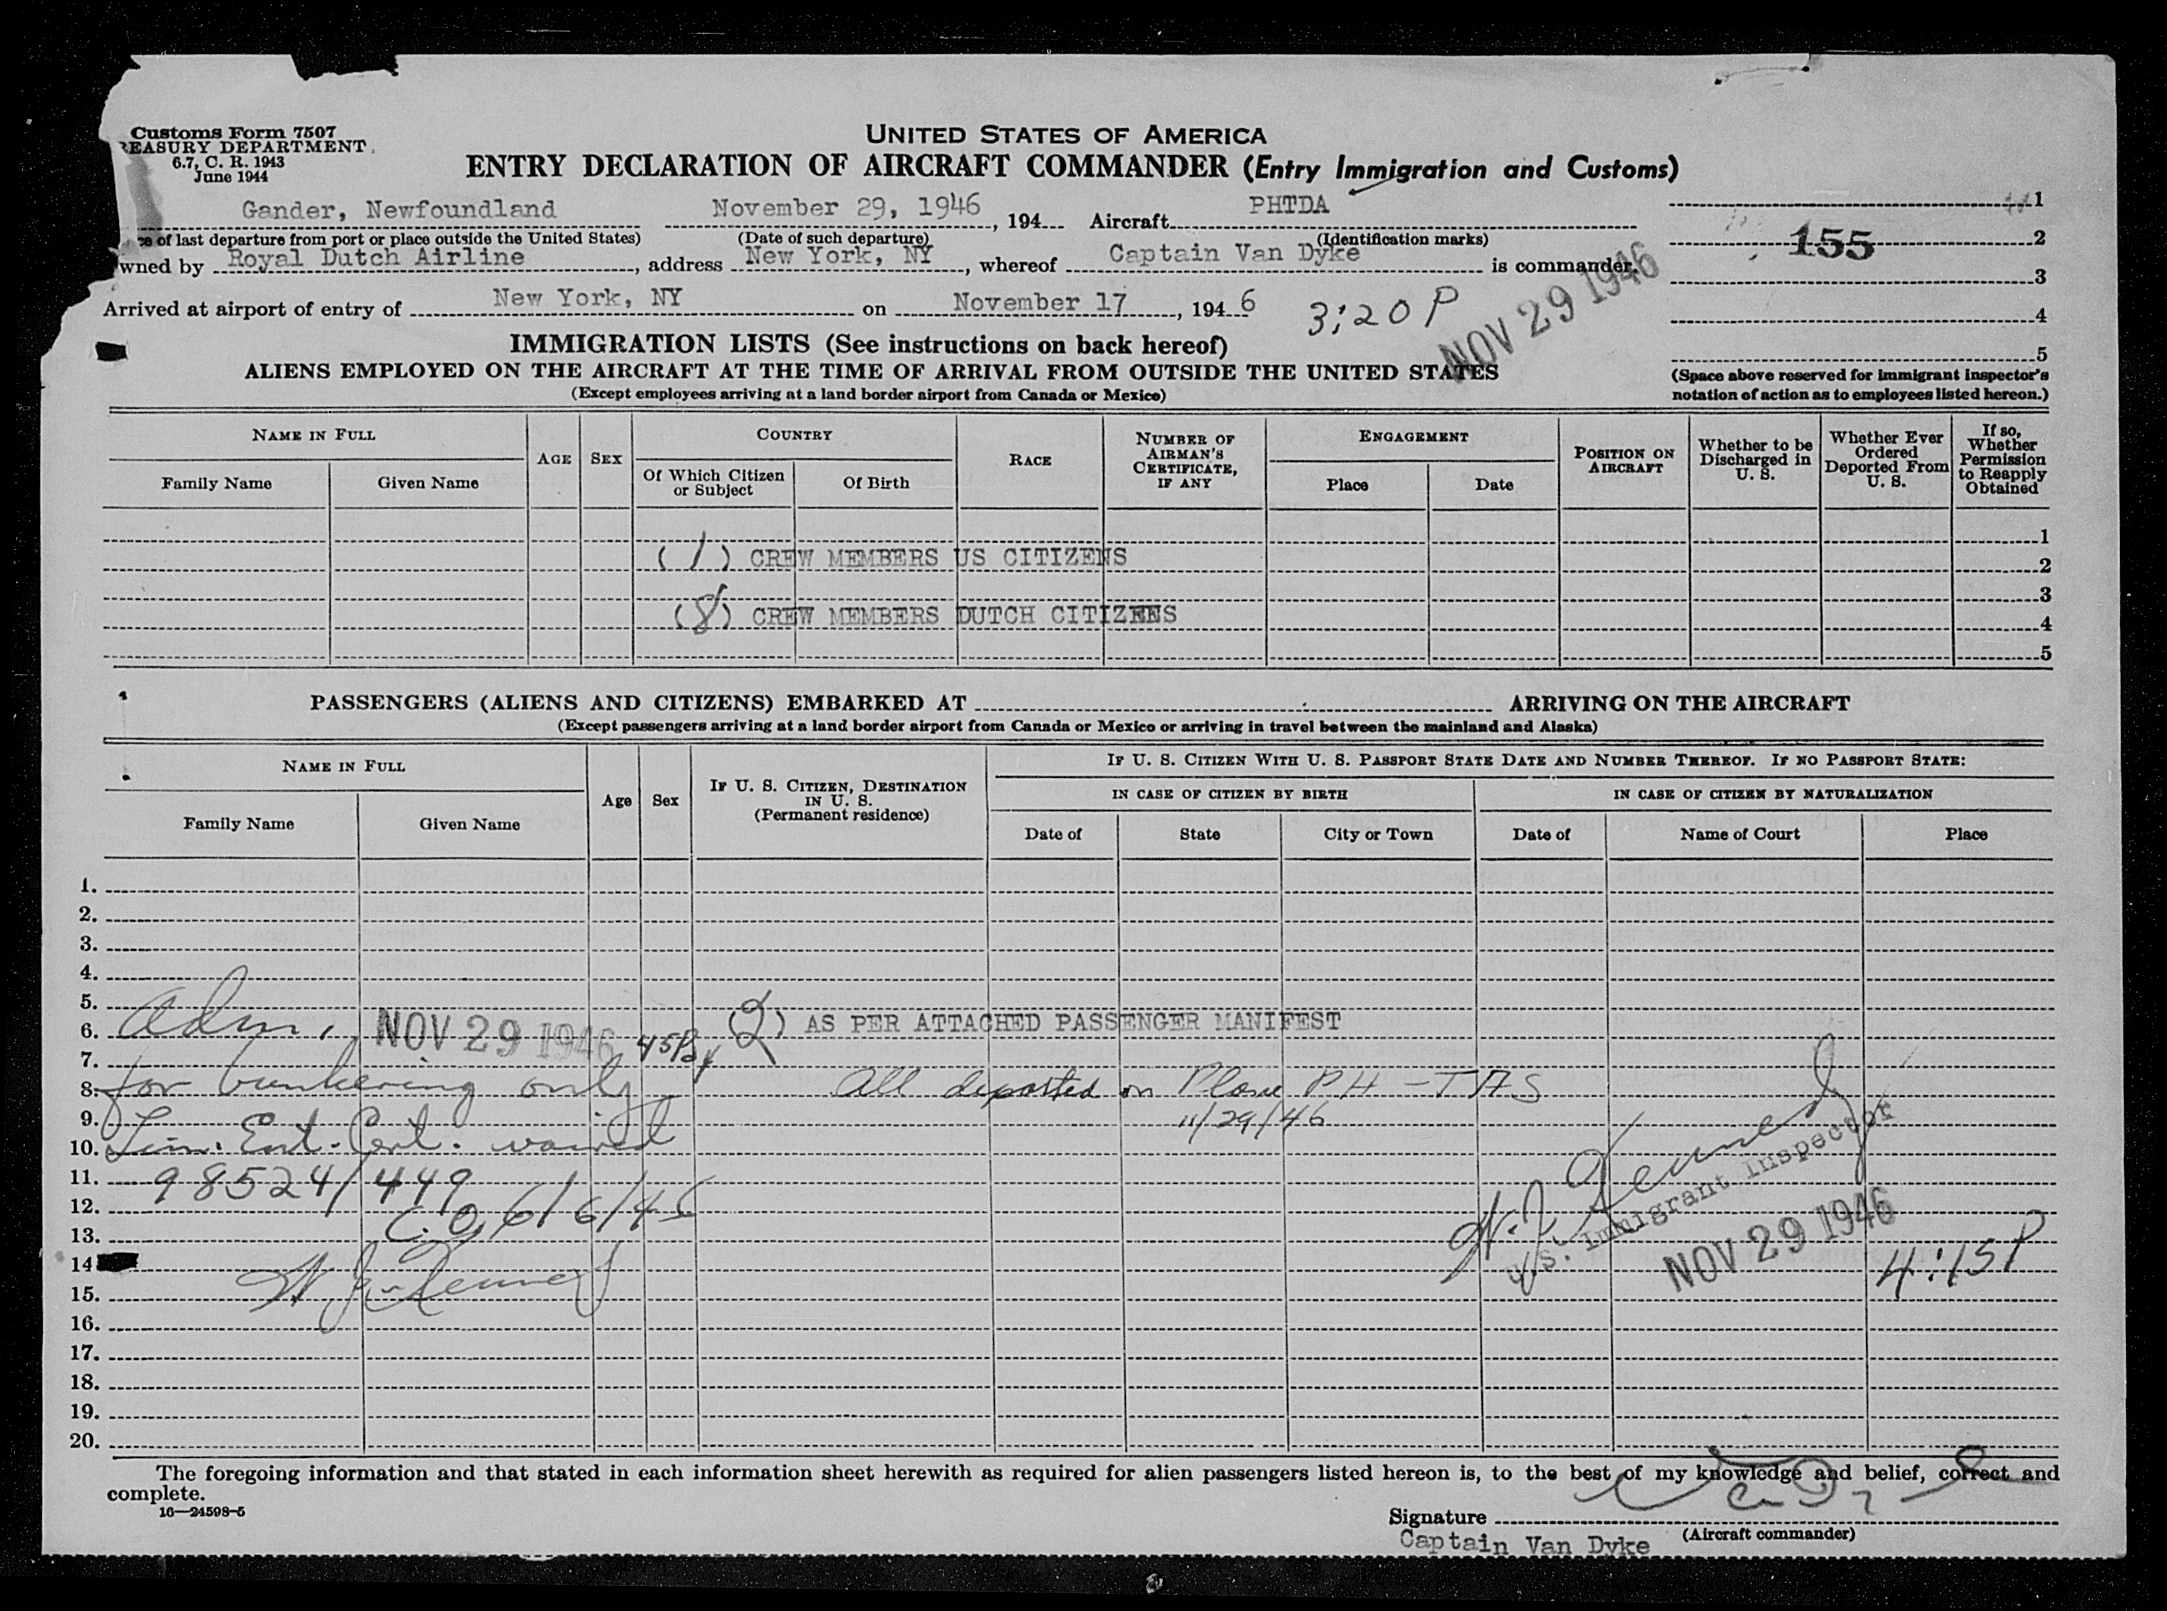 Customs Form 7507
REASURY DEPARTMENT
6.7, C. R. 1943
June 1944
UNITED STATES OF AMERICA
ENTRY DECLARATION OF AIRCRAFT COMMANDER (Entry Immigration and Customs)
Gander, Newfoundland November 29, 1946, 194 Aircraft PHTDA
ce of last departure from port or place outside the United States) (Date of such departure) (Identification marks)
wned by Royal Dutch Airline, address New York, NY, whereof Captain Van Dyke is commander.
Arrived at airport of entry of New York, NY on November 17, 1946 3:20 P
NOV 29 1946
1
155 2
3
4
5
(Space above reserved for immigrant inspector's
notation of action as to employees listed hereon.)
IMMIGRATION LISTS (See instructions on back hereof)
ALIENS EMPLOYED ON THE AIRCRAFT AT THE TIME OF ARRIVAL FROM OUTSIDE THE UNITED STATES
(Except employees arriving at a land border airport from Canada or Mexico)
NAME IN FULL
Family Name Given Name
AGE
SEX
COUNTRY
Of Which Citizen or Subject
Of Birth
RACE
NUMBER OF AIRMAN'S CERTIFICATE, IF ANY
ENGAGEMENT
Place Date
POSITION ON AIRCRAFT
Whether to be Discharged in U. S.
Whether Ever Ordered Deported From U. S.
If so, Whether Permission to Reapply Obtained
1
(1) CREW MEMBERS US CITIZENS 2
3
(8) CREW MEMBERS DUTCH CITIZENS 4
5
PASSENGERS (ALIENS AND CITIZENS) EMBARKED AT ARRIVING ON THE AIRCRAFT
(Except passengers arriving at a land border airport from Canada or Mexico or arriving in travel between the mainland and Alaska)
NAME IN FULL
Family Name Given Name
Age
Sex
IF U. S. CITIZEN, DESTINATION IN U. S.
(Permanent residence)
IF U. S. CITIZEN WITH U. S. PASSPORT STATE DATE AND NUMBER THEREOF. IF NO PASSPORT STATE:
IN CASE OF CITIZEN BY BIRTH
Date of State City or Town
IN CASE OF CITIZEN BY NATURALIZATION
Date of Name of Court Place
1.
2.
3.
4.
5.
6. Adm. NOV 29 1946 (2) AS PER ATTACHED PASSENGER MANIFEST
7.
8. for bunkering only All departed on Plane PH-TAS
9. 11/29/46
10. Lim. Ent. Cert. waived
11. 98524/449
12. C.O. 6/6/45
13.
14
15. W. J. Kennedy
16.
17.
18.
19.
20.
W. J. Kennedy
U.S. Immigrant Inspector
NOV 29 1946 4:15P
The foregoing information and that stated in each information sheet herewith as required for alien passengers listed hereon is, to the best of my knowledge and belief, correct and
complete.
16—24598-5
Signature
(Aircraft commander)
Captain Van Dyke